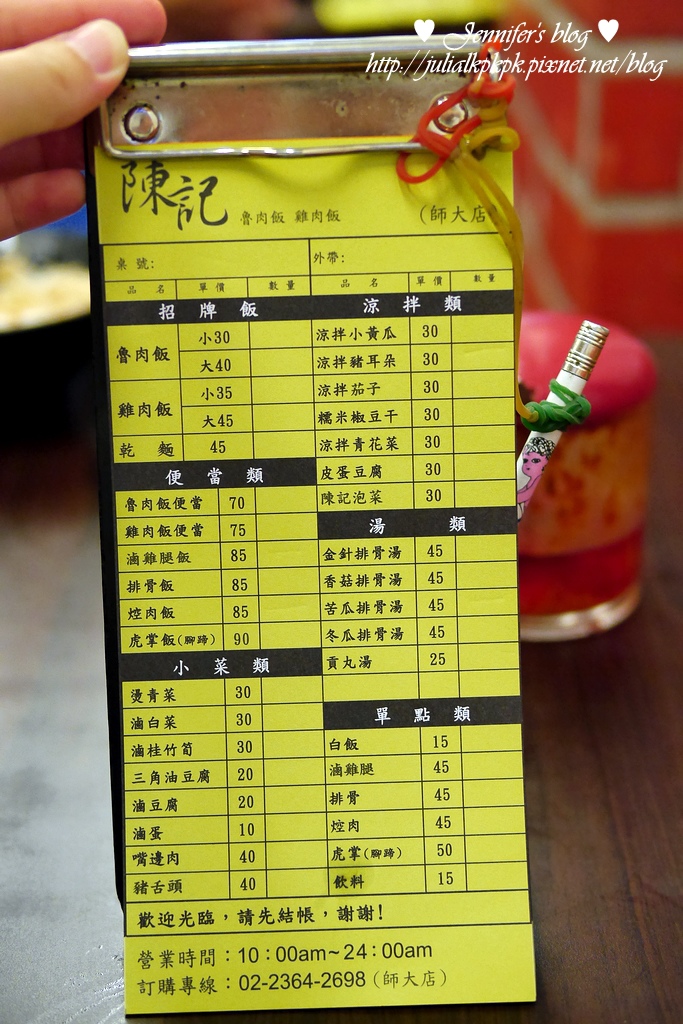 ♥ Jennifer's blog ♥
http://julialkpkpk.pixnet.net/blog
陳記 魯肉飯 雞肉飯 (師大店)
桌號:
外帶:
品名 單價 數量
招牌飯
魯肉飯 小30
大40
雞肉飯 小35
大45
乾麵 45
便當類
魯肉飯便當 70
雞肉飯便當 75
滷雞腿飯 85
排骨飯 85
焢肉飯 85
虎掌飯(腳蹄) 90
小菜類
燙青菜 30
滷白菜 30
滷桂竹筍 30
三角油豆腐 20
滷豆腐 20
滷蛋 10
嘴邊肉 40
豬舌頭 40
品名 單價 數量
涼拌類
涼拌小黃瓜 30
涼拌豬耳朵 30
涼拌茄子 30
糯米椒豆干 30
涼拌青花菜 30
皮蛋豆腐 30
陳記泡菜 30
湯類
金針排骨湯 45
香菇排骨湯 45
苦瓜排骨湯 45
冬瓜排骨湯 45
貢丸湯 25
單點類
白飯 15
滷雞腿 45
排骨 45
焢肉 45
虎掌(腳蹄) 50
飲料 15
歡迎光臨，請先結帳，謝謝!
營業時間：10：00am~24：00am
訂購專線：02-2364-2698（師大店）